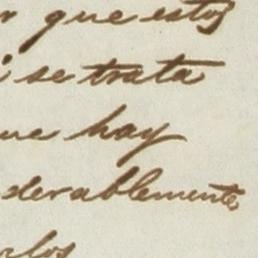 r que estos
i se trata
ue hay
derablemente,
rlos